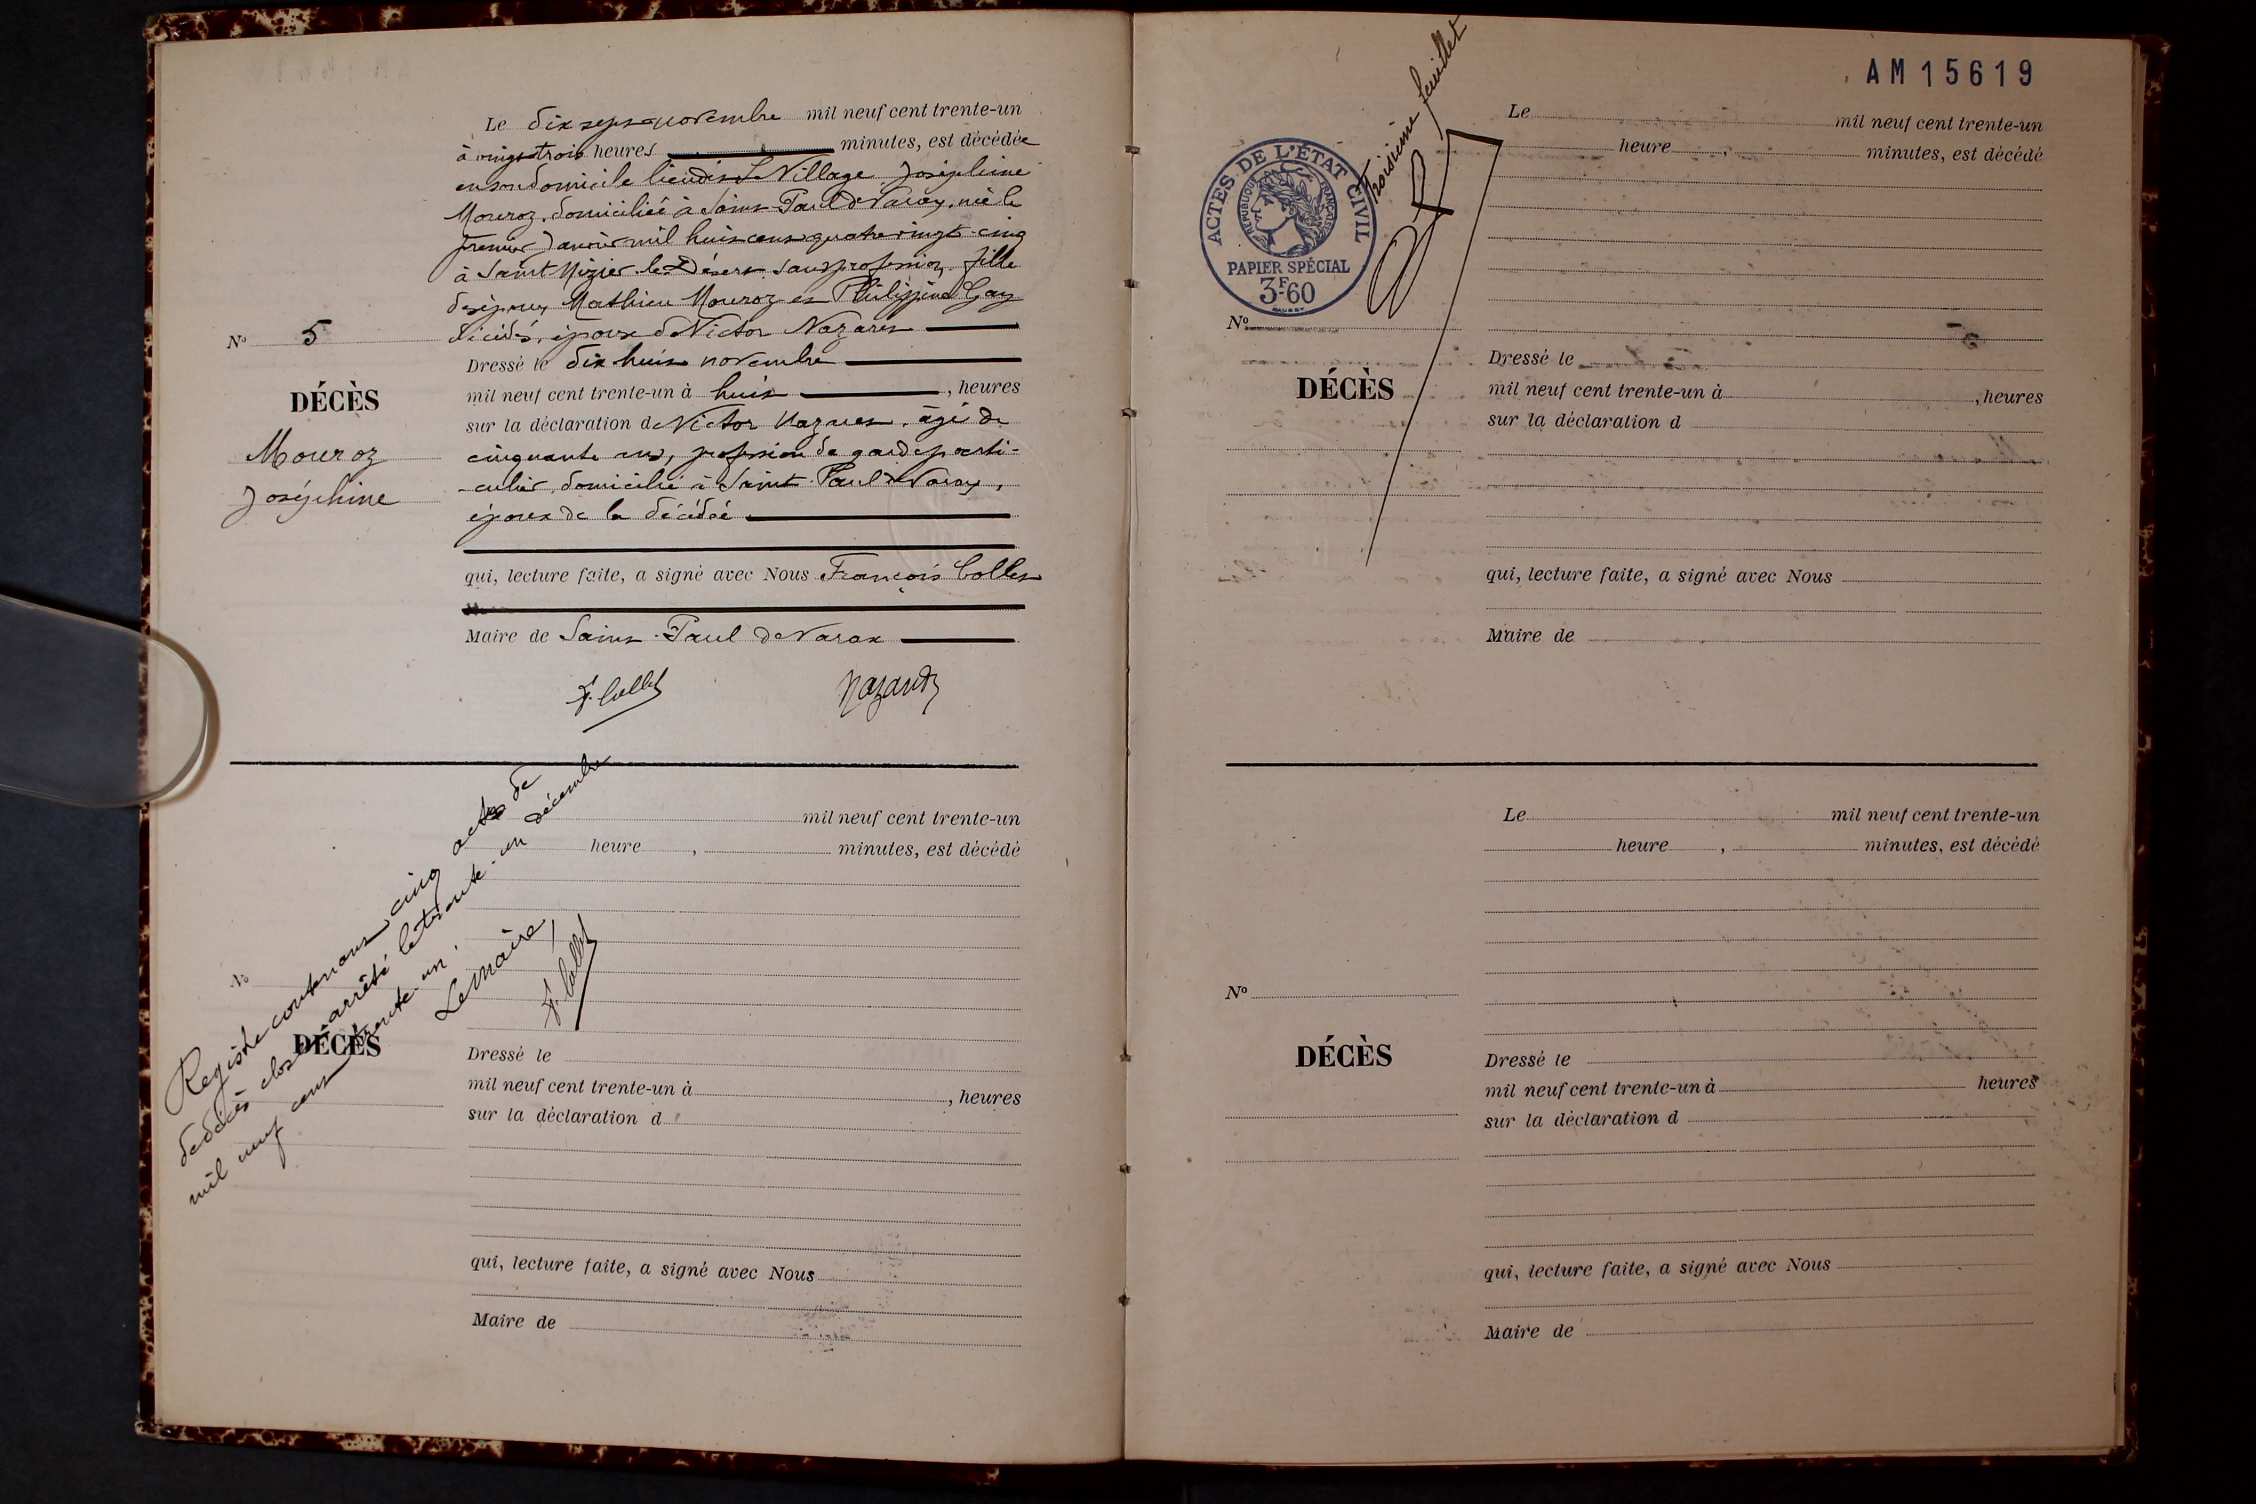 Le dix sept novembre mil neuf cent trente-un
à vingt trois heures minutes, est décédée
en son domicile lieudit Le Village Joséphine
Mouroz, domiciliée à Saint Paul de Varax, née le
premier Janvier mil huit cent quatre vingt-cinq
à Saint Nizier le Désert sans profession, fille
des époux Mathieu Mouroz et Philippine Gay
décédés, épouse de Victor
Nº 5
DÉCÈS
Mouroz
Joséphine
Dressé le dix huit novembre
mil neuf cent trente-un à huit, heures
sur la déclaration de Victor, âgé de
cinquante ans, profession de garde parti-
-culier, domicilié à Saint-Paul de Varax,
époux de la décédée
qui, lecture faite, a signé avec Nous François Collet
Maire de Saint-Paul de Varax
F. Collet
Nazaret
Registre contenant cinq actes de
de décès clos et arrêté le trente-un décembre
mil neuf cent trente-un.
Le Maire,
F. Collet
mil neuf cent trente-un
heure, minutes, est décédé
Nº
DÉCÈS
Dressé le
mil neuf cent trente-un à, heures
sur la déclaration d
qui, lecture faite, a signé avec Nous
Maire de
AM15619
Troisième feuillet
ACTES DE L'ÉTAT CIVIL
RÉPUBLIQUE FRANÇAISE
PAPIER SPÉCIAL
3F.60
Le mil neuf cent trente-un
heure, minutes, est décédé
Nº
DÉCÈS
Dressé le
mil neuf cent trente-un à, heures
sur la déclaration d
qui, lecture faite, a signé avec Nous
Maire de
Le mil neuf cent trente-un
heure, minutes, est décédé
Nº
DÉCÈS
Dressé le
mil neuf cent trente-un à heures
sur la déclaration d
qui, lecture faite, a signé avec Nous
Maire de